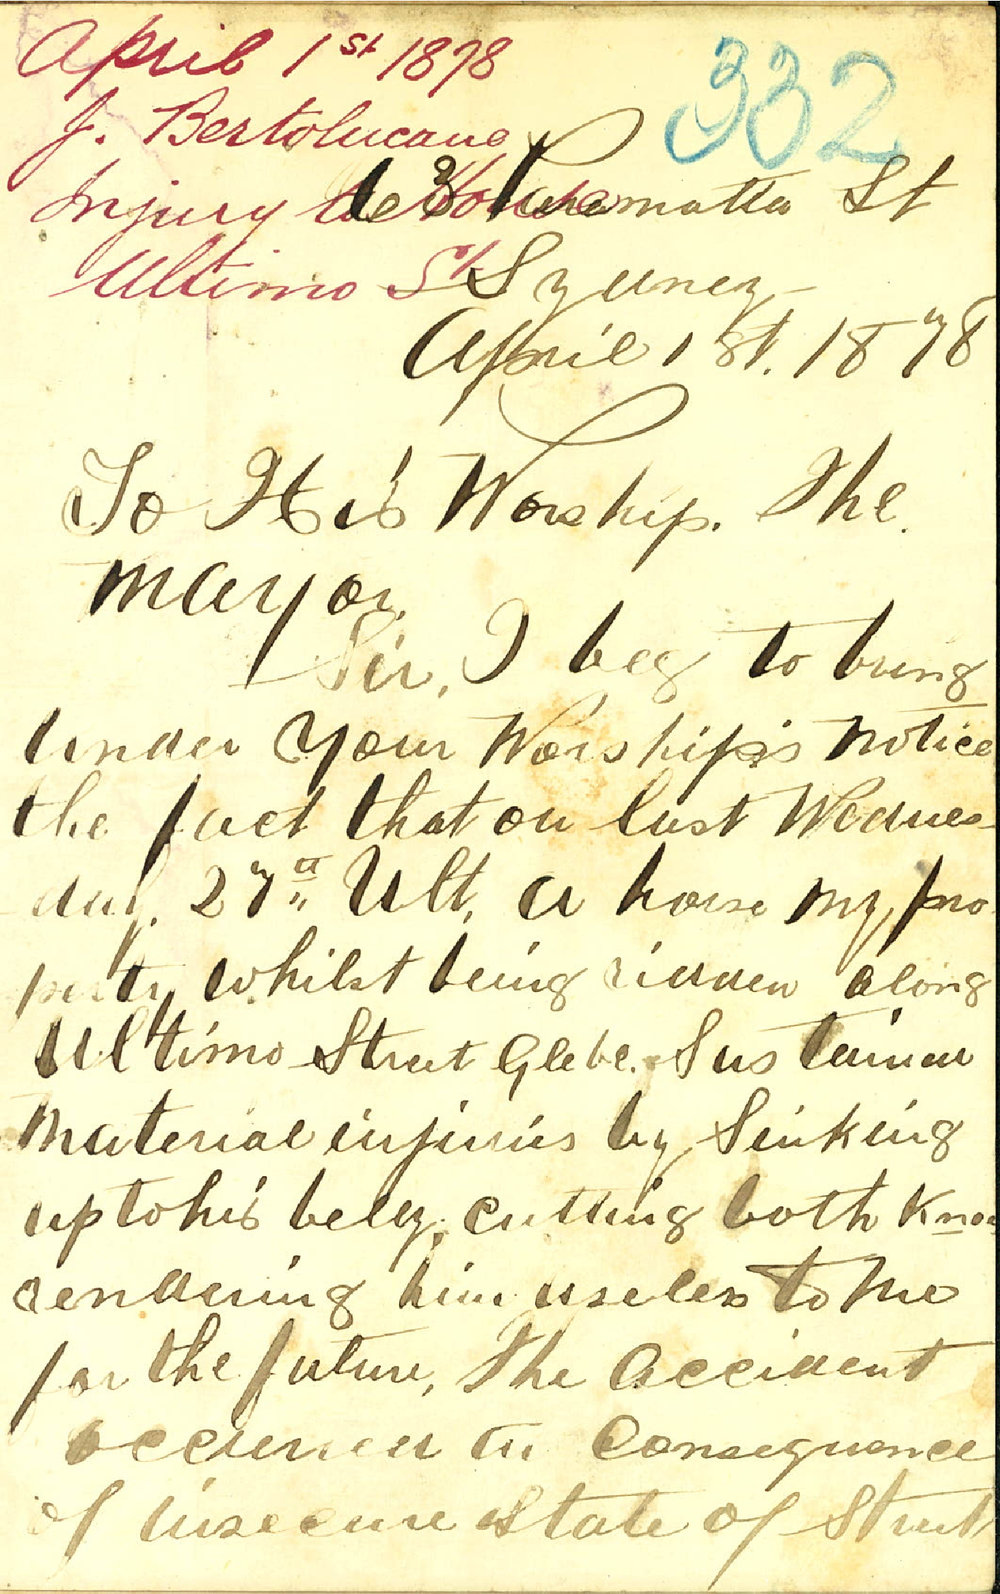 April 1st 1878
332
J. Bertolucane
Injury to Horse
Ultimo St
Paramatta St
Sydney
April 1st. 1878
To His Worship. The
Mayor.
Sir, I beg to bring
under Your Worship's notice
the fact that on last Wednes-
day. 27th Ult, a horse my pro-
perty whilst being ridden along
Ultimo Street Glebe. Sustained
Material injuries by Sinking
up to his belly, cutting both Knees
rendering him useless to me
for the future, The Accident
occurred in Consequence
of insecure State of Street